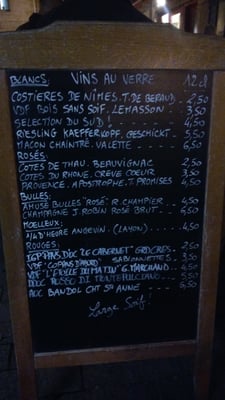 BLANCS: VINS AU VERRE 12cl
COSTIERES DE NÎMES. T. DE BERAUD. 2,50
VDF BOIS SANS SOIF. LEMASSON. 3,50
SELECTION DU SUD! 4,50
RIESLING KAEFFERKOPF. GESCHICKT. 5,50
MACON CHAINTRÉ. VALETTE 6,50
ROSÉS:
COTES DE THAU. BEAUVIGNAC 2,50
COTES DU RHONE. CREVE COEUR 3,50
PROVENCE. APOSTROPHE. T. PROMISES 4,50
BULLES:
AMUSE BULLES "ROSÉ" R. CHAMPIER. 4,50
CHAMPAGNE J. ROBIN ROSÉ BRUT 6,50
MOELLEUX:
1/4 D'HEURE ANGEVIN. (LAYON) 4,50
ROUGES:
IGP PAYS D'OC "LE CABERNET" 2,50
VDF "COPAINS D'ABORD" SABLONNETTES. 3,50
VDF "L'ETOILE DU MATIN" G. MARCHAND. 4,50
DOC ROSSO DI MONTEPULCIANO 5,50
AOC BANDOL CHT STE ANNE 6,50
Large Soif!